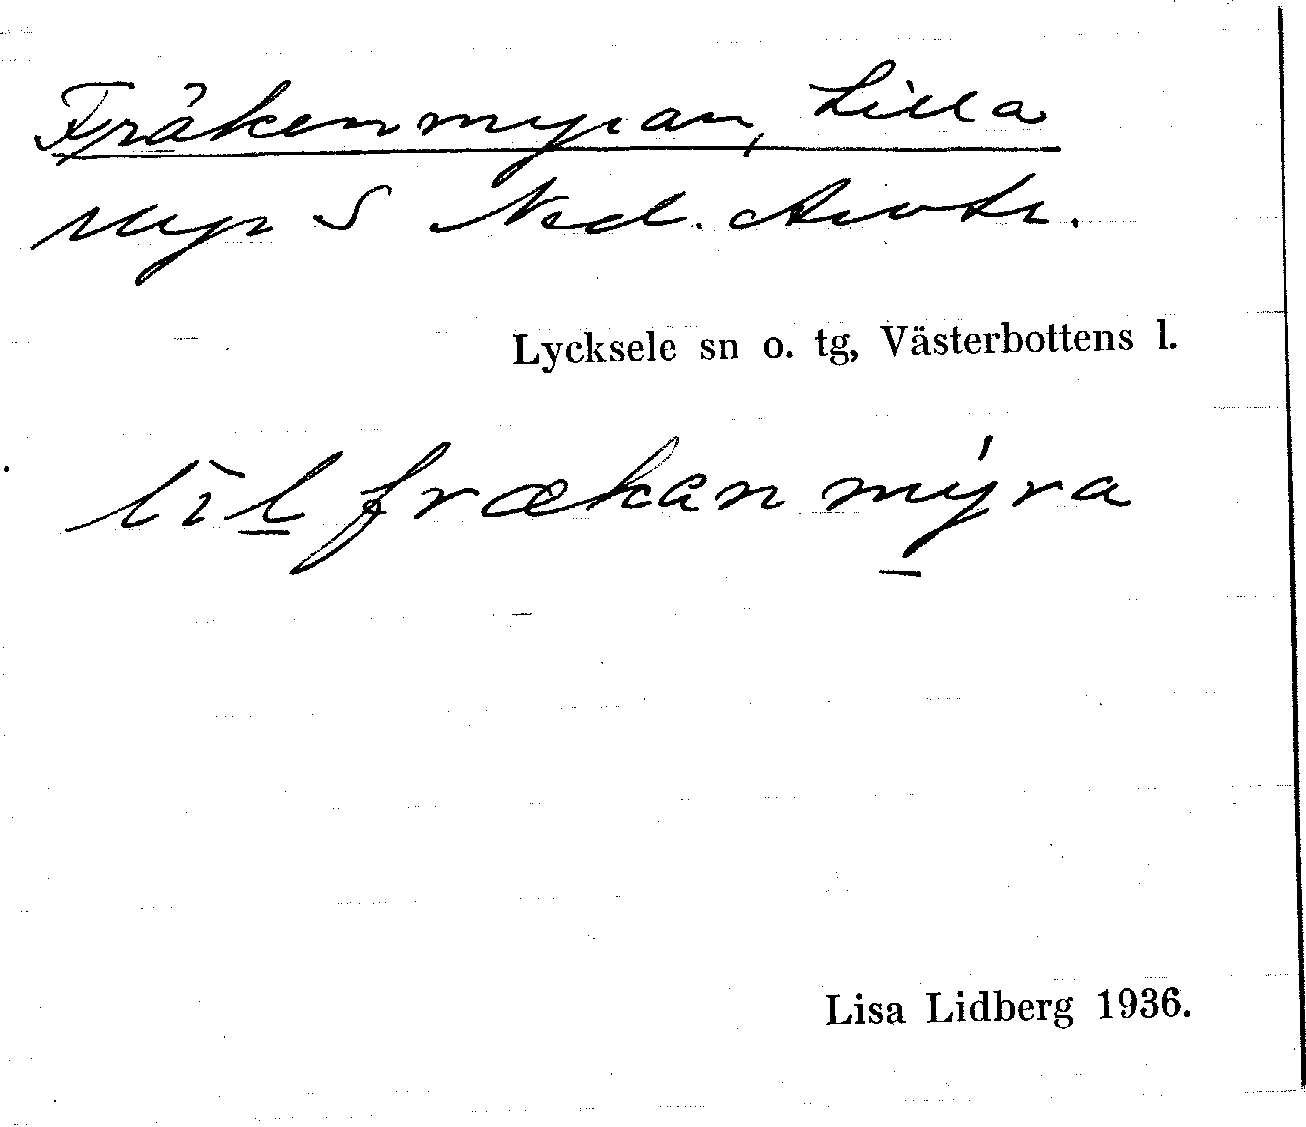 Fräkenmyran, Lilla
Myr S Ned.
Lycksele sn o. tg, Västerbottens l.
lìl frækanmýra
Lisa Lidberg 1936.